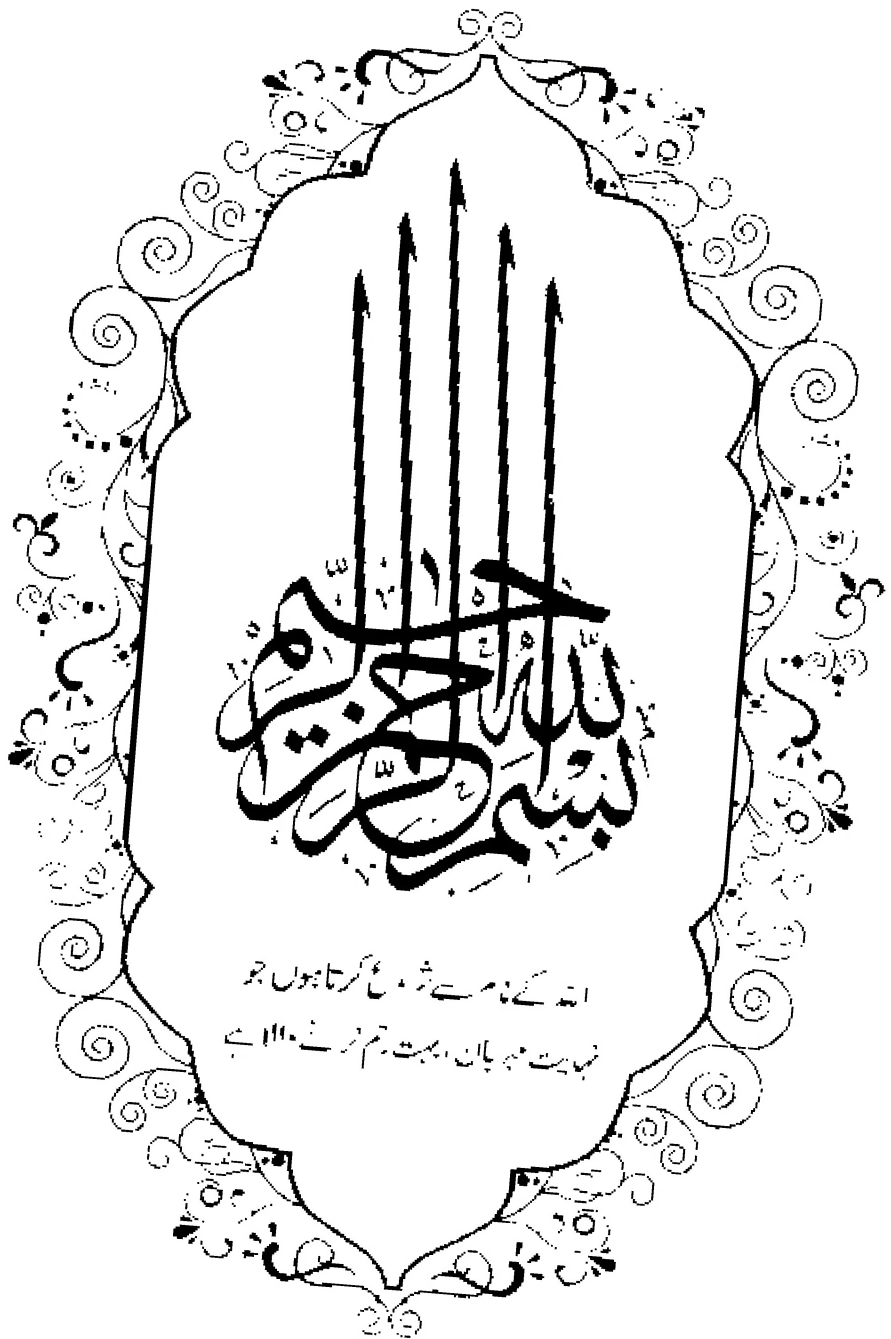 بسم الله الرحمن الرحيم
اللہ کے نام سے شروع کرتا ہوں جو
نہایت مہربان بہت رحم کرنے والا ہے